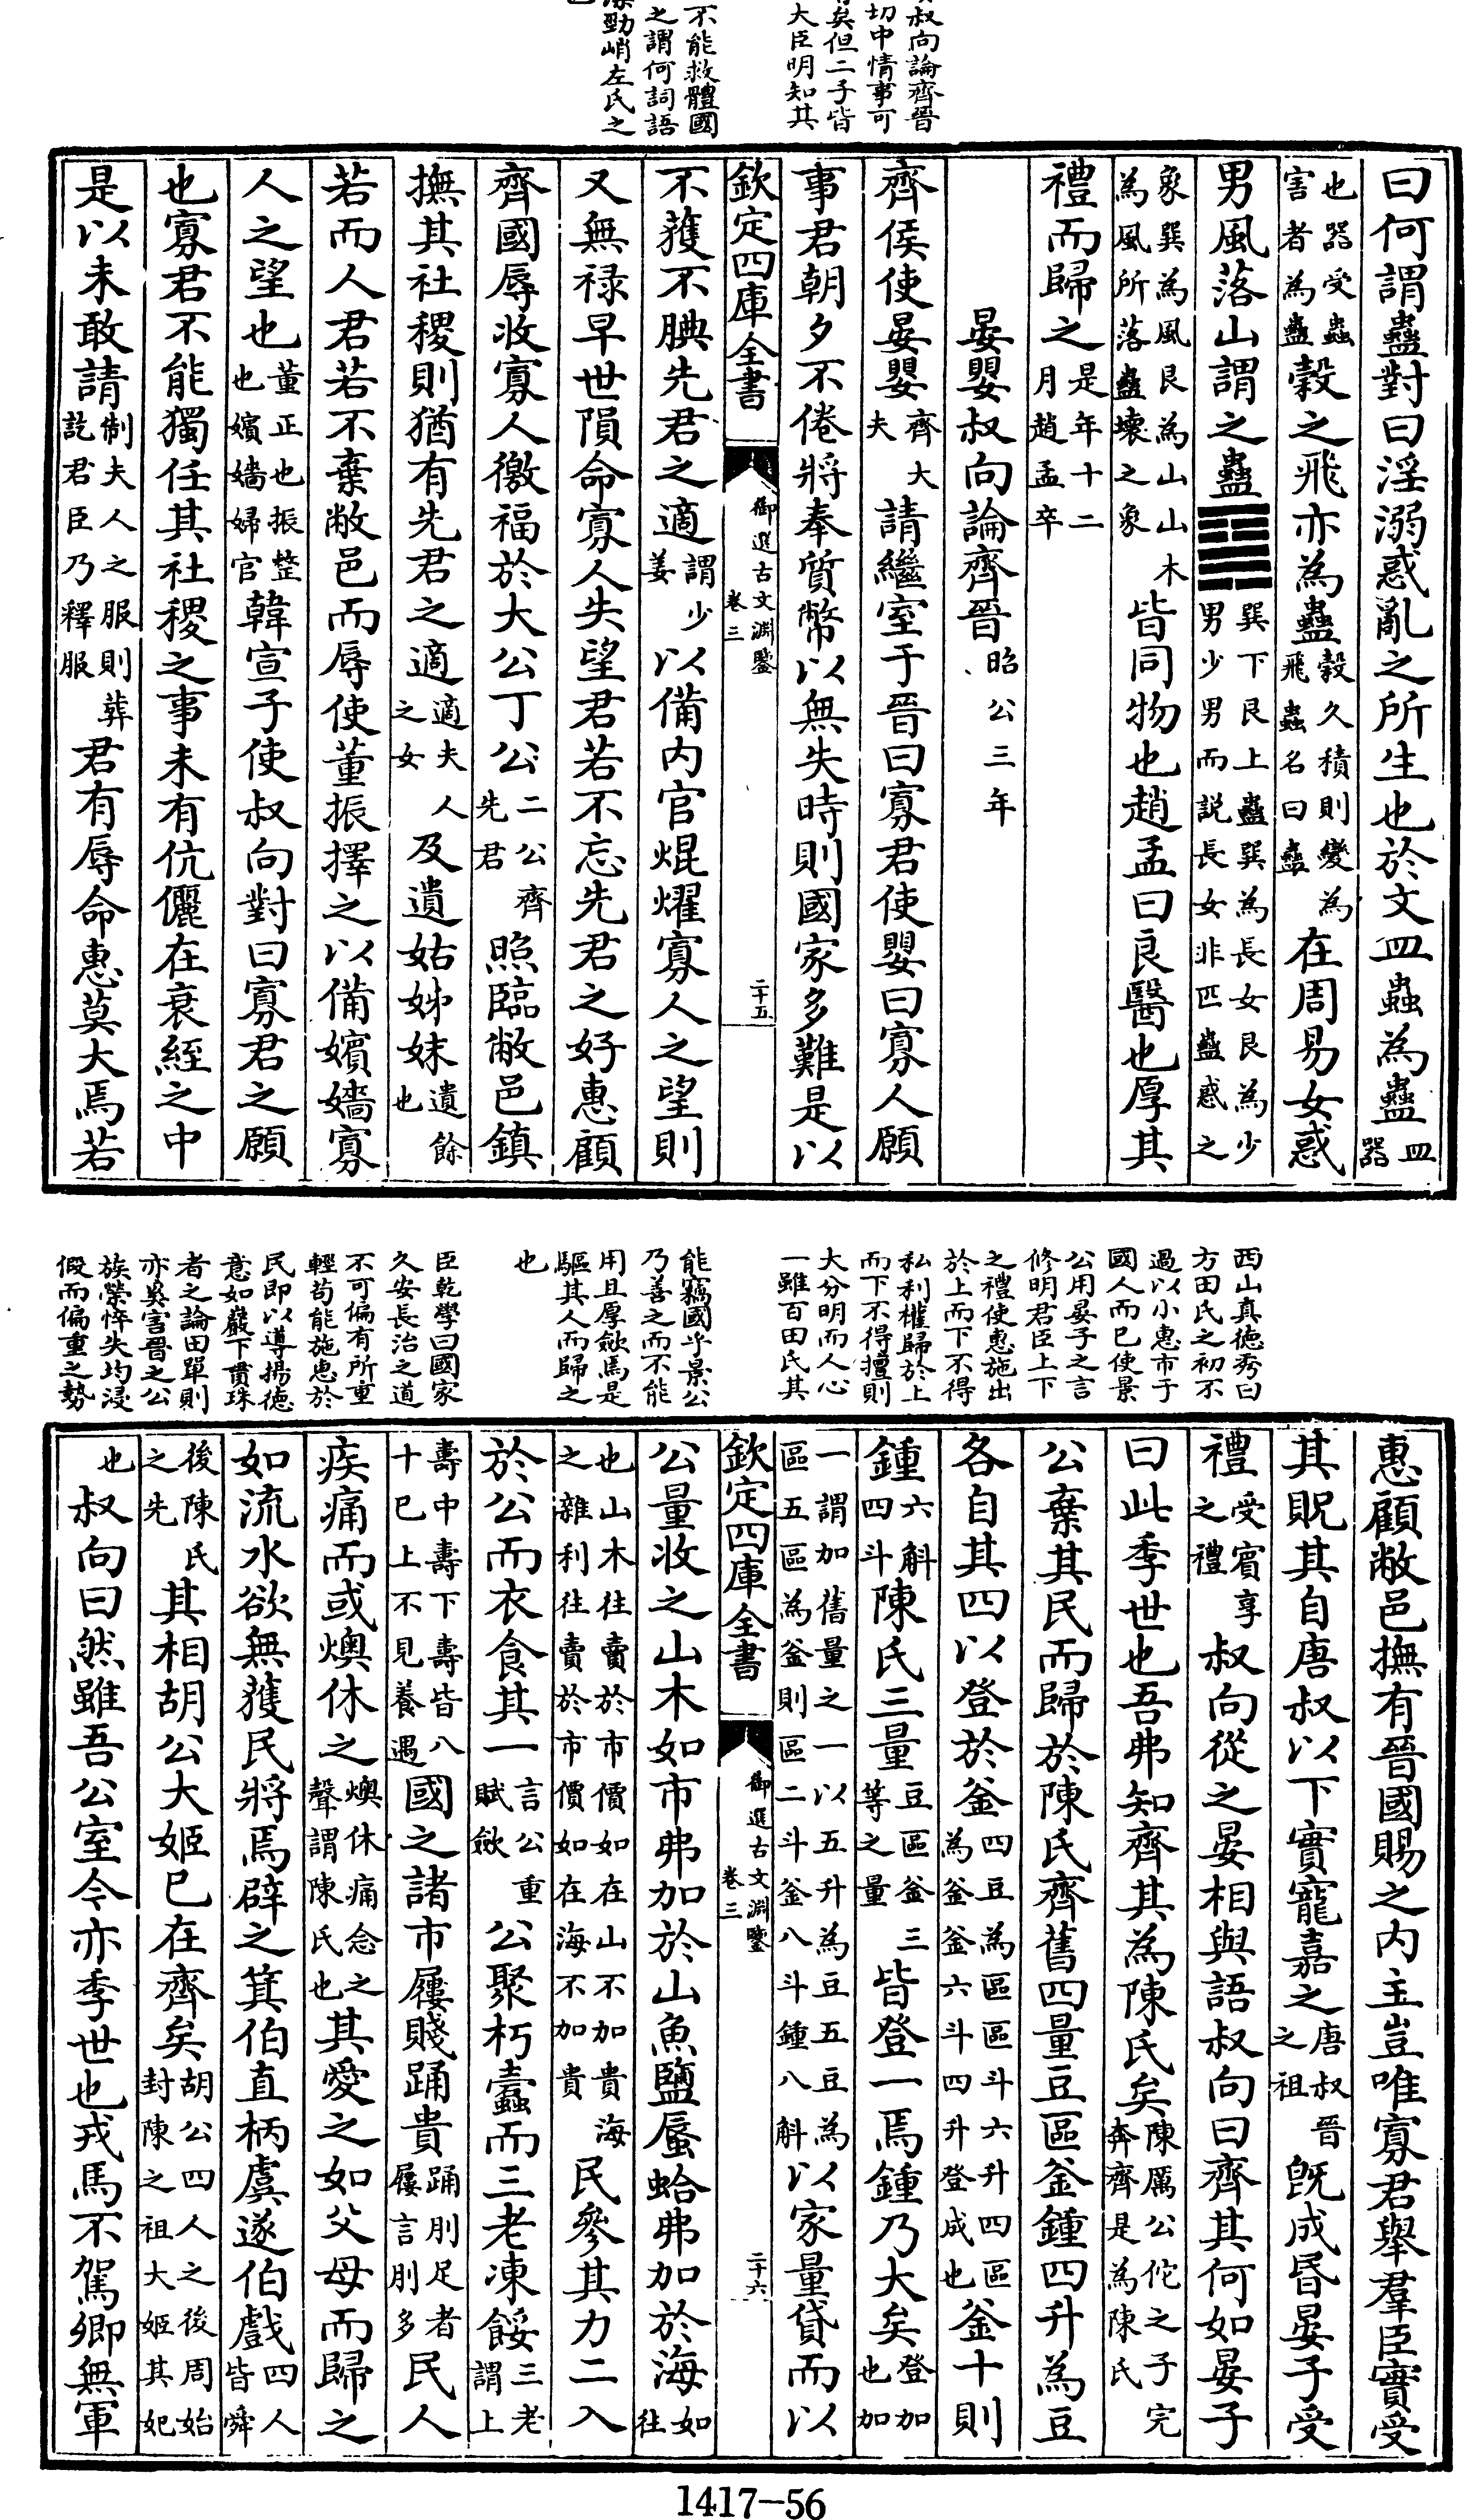 叔向論齊晉
切中情事可
矣但二子皆
大臣明知其
不能救體國
之謂何詞語
勁峭左氏之
曰何謂蠱對曰淫溺惑亂之所生也於文皿蟲為蠱皿器
也器受蟲害者為蠱穀之飛亦為蠱穀久積則變為飛蟲名曰蠱在周易女惑
男風落山謂之蠱䷑巽下艮上蠱巽為長女艮為少男少男而説長女非匹蠱惑之
象巽為風艮為山山木為風所落蠱壞之象皆同物也趙孟曰良醫也厚其
禮而歸之是年十二月趙孟卒
晏嬰叔向論齊晉昭公三年
齊侯使晏嬰齊大夫請繼室于晉曰寡君使嬰曰寡人願
事君朝夕不倦將奉質幣以無失時則國家多難是以
欽定四庫全書
御選古文淵鑒
卷三
二十五
不獲不腆先君之適謂少姜以備内官焜燿寡人之望則
又無禄早世隕命寡人失望君若不忘先君之好惠顧
齊國辱收寡人徼福於大公丁公二公齊先君照臨敝邑鎮
撫其社稷則猶有先君之適適夫人之女及遺姑姊妹遺餘也
若而人君若不棄敝邑而辱使董振擇之以備嬪嬙寡
人之望也董正也振整也嬪嬙婦官韓宣子使叔向對曰寡君之願
也寡君不能獨任其社稷之事未有伉儷在衰絰之中
是以未敢請制夫人之服則葬訖君臣乃釋服君有辱命惠莫大焉若
西山真德秀曰
方田氏之初不
過以小惠市于
國人而已使景
公用晏子之言
修明君臣上下
之禮使惠施出
於上而下不得
私利權歸於上
而下不得擅則
大分明而人心
一雖百田氏其
能竊國乎景公
乃善之而不能
用且厚歛焉是
驅其人而歸之
也
臣乾學曰國家
久安長治之道
不可偏有所重
輕苟能施惠於
民即以導揚德
意如巖下貫珠
者之論田單則
亦奚害晉之公
族榮悴失均浸
假而偏重之勢
惠顧敝邑撫有晉國賜之内主豈唯寡君舉羣臣實受
其貺其自唐叔以下實寵嘉之唐叔晉之祖既成昏晏子受
禮受賓享之禮叔向從之晏相與語叔向曰齊其何如晏子
曰此季世也吾弗知齊其為陳氏矣陳厲公佗之子完奔齊是為陳氏
公棄其民而歸於陳氏齊舊四量豆區釜鍾四升為豆
各自其四以登於釜四豆為區區斗六升四區為釜釜六斗四升登成也釜十則
鍾六斛四斗陳氏三量豆區釜三等之量皆登一焉鍾乃大矣登加也加
一謂加舊量之一以五升為豆五豆為區五區為釜則區二斗釜八斗鍾八斛以家量貸而以
欽定四庫全書
御選古文淵鑒
卷三
二十六
公量收之山木如市弗加於山魚鹽蜃蛤弗加於海如往
也山木往賣於市價如在山不加貴海之雜利往賣於市價如在海不加貴民參其力二入
於公而衣食其一言公重賦歛公聚朽蠹而三老凍餒三老謂上
壽中壽下壽皆八十已上不見養遇國之諸市屨賤踊貴踊刖足者屨言刖多民人
疾痛而或燠休之燠休痛念之聲謂陳氏也其愛之如父母而歸之
如流水欲無獲民將焉辟之箕伯直柄虞遂伯戲四人皆舜
後陳氏之先其相胡公大姬已在齊矣胡公四人之後周始封陳之祖大姬其妃
也叔向曰然雖吾公室今亦季世也戎馬不駕卿無軍
1417-56